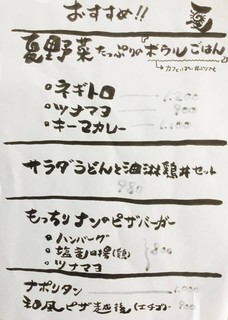 おすすめ!!
夏野菜たっぷりの『ボウルごはん』
○ネギトロ 1,200
○ツナマヨ 900
○キーマカレー 1,100
サラダうどんと油淋鶏丼セット
980
もっちりナンのピザバーガー
○ハンバーグ
○塩竜田揚(鶏) 800
○ツナマヨ
ナポリタン
和風ピザ越後(エチゴ) 900